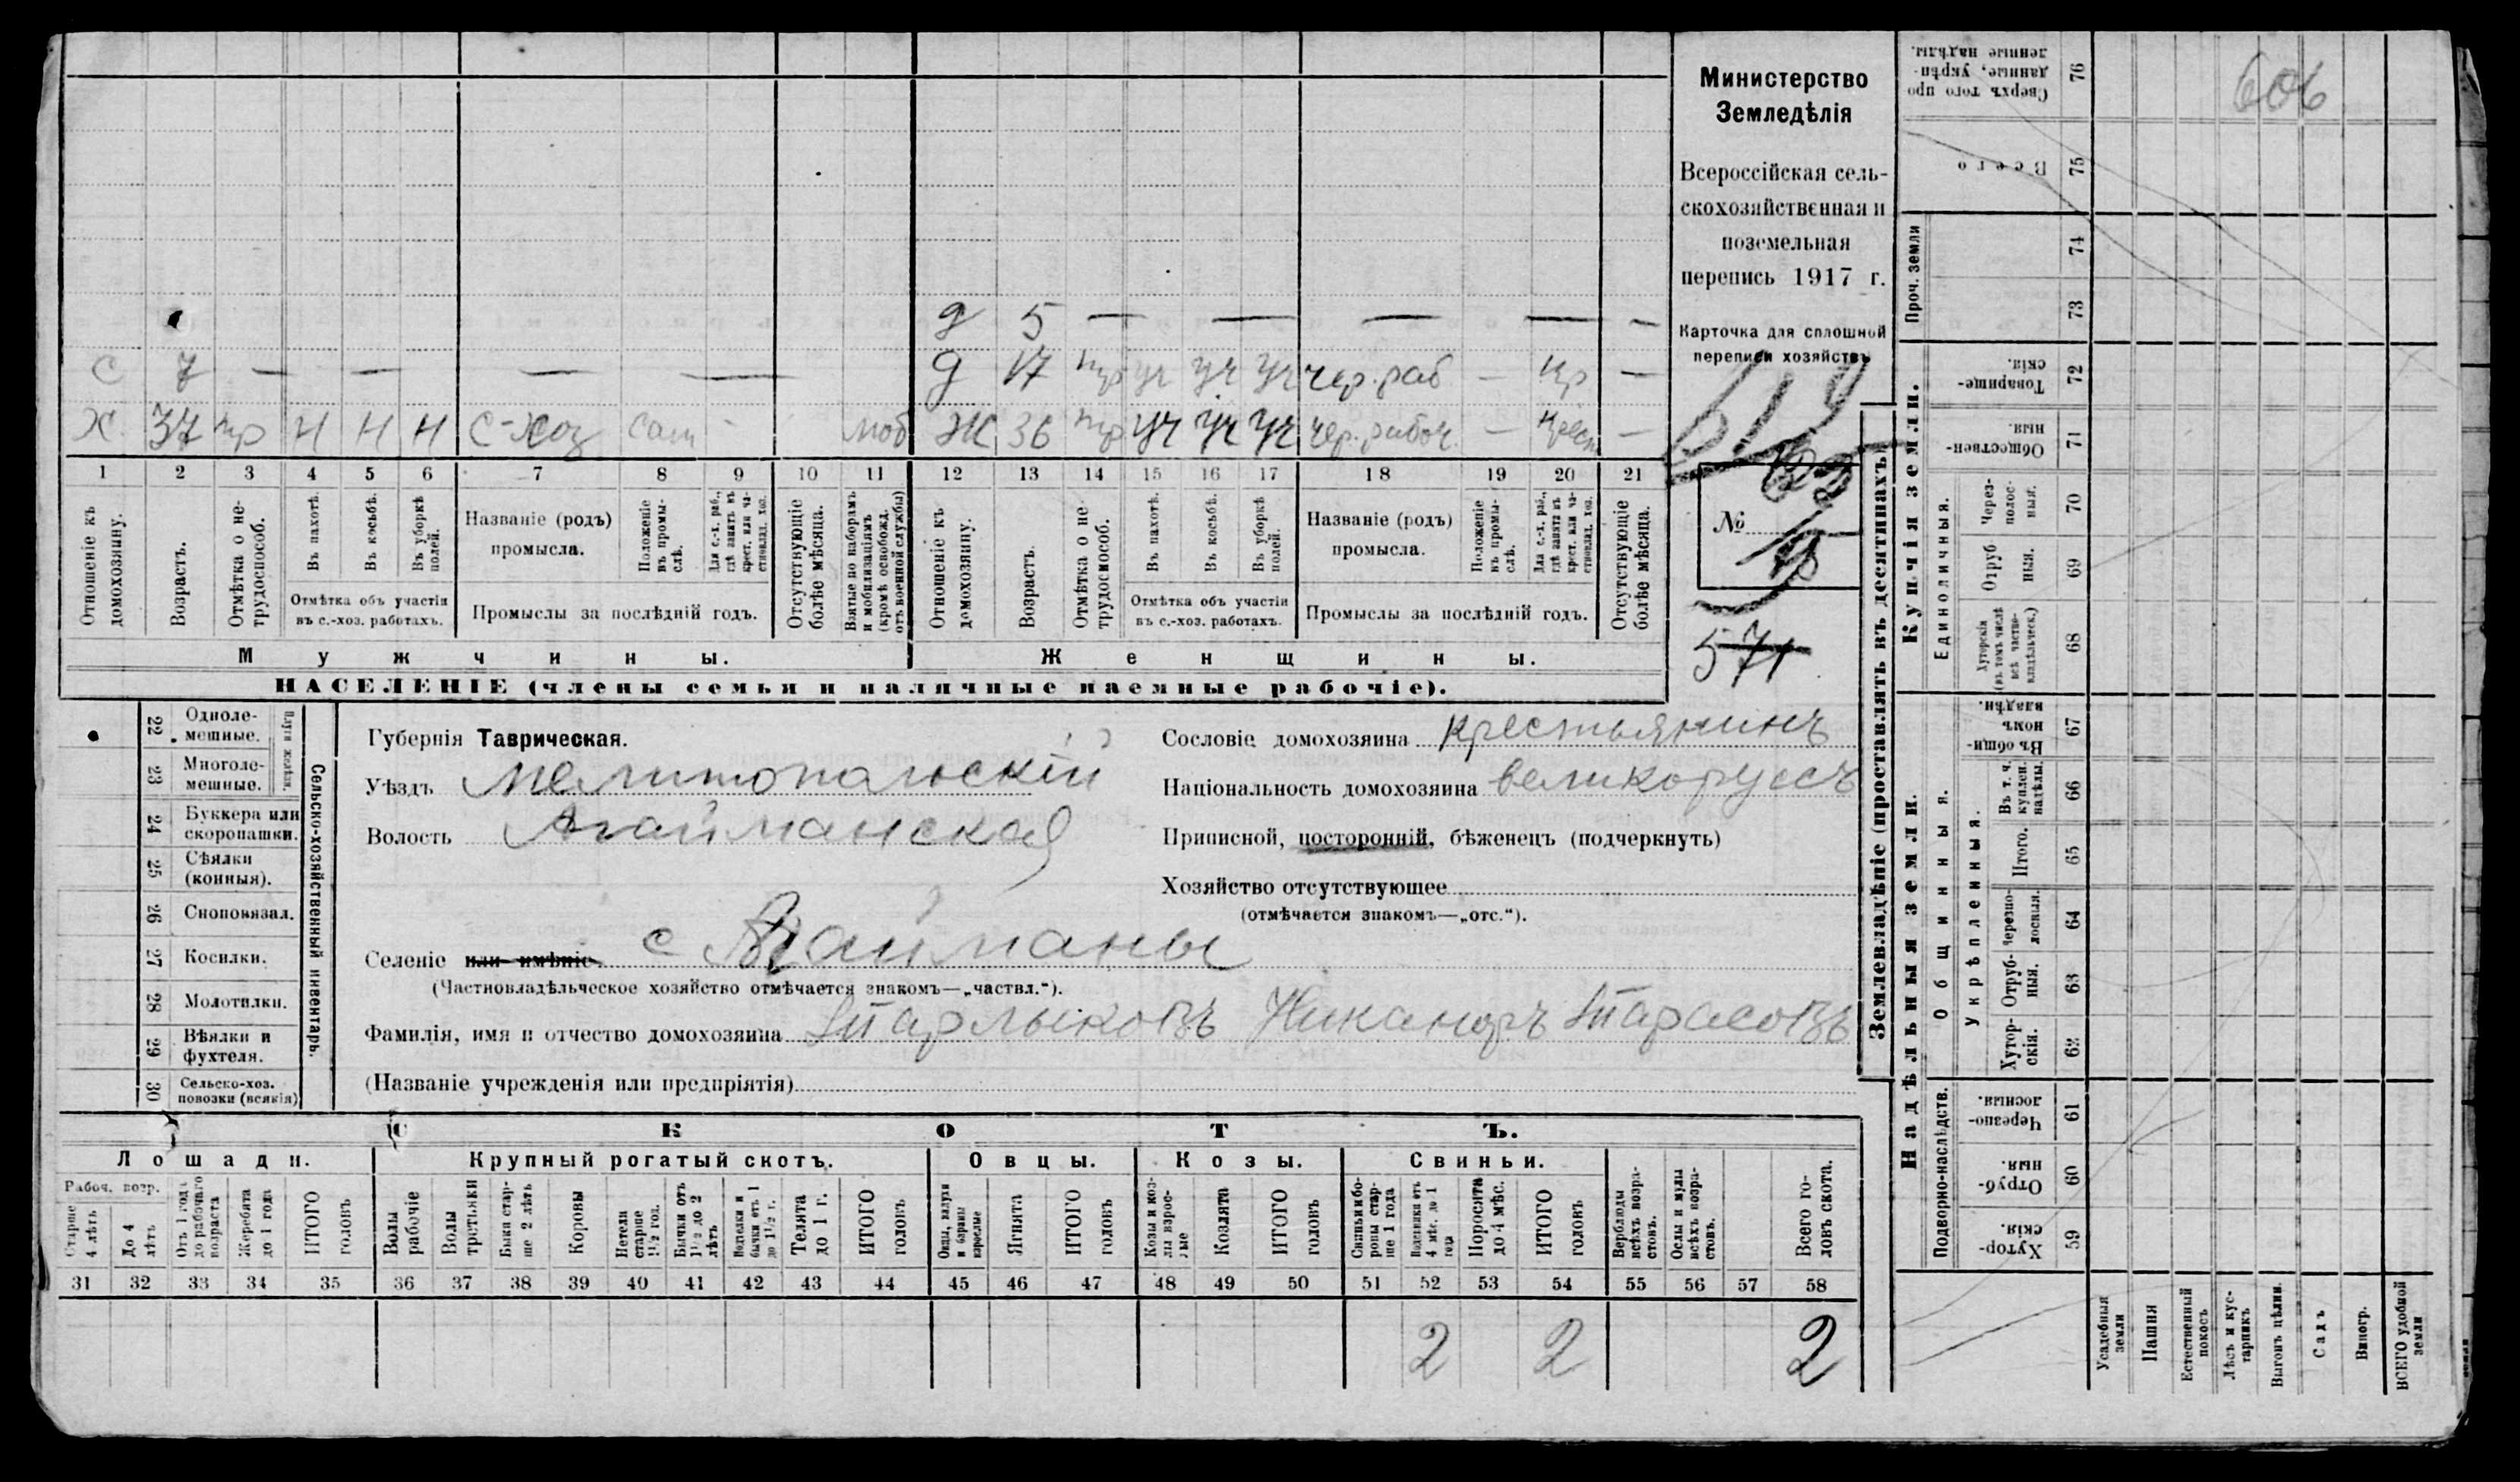 606
Министерство
Земледѣлія
Всероссійская сель-
скохозяйственная и
поземельная
перепись 1917 г.
Карточка для сплошной
переписи хозяйствъ
№
571
д 5 — — — — —
С 7 — — — —
д 17 пр уч уч уч чер. раб — кр —
Х 37 пр Н Н Н С-хоз сам - моб
Ж 36 пр уч уч уч чер. рабоч. — крест —
1 2 3 4 5 6 7 8 9 10 11 12 13 14 15 16 17 18 19 20 21
Отношеніе къ домохозяину.
Возрастъ.
Отмѣтка о не-трудоспособ.
Въ пахотѣ.
Въ косьбѣ.
Въ уборкѣ полей.
Отмѣтка объ участіи
въ с.-хоз. работахъ.
Названіе (родъ)
промысла.
Положеніе въ промы-слѣ.
Для с.-х. раб., гдѣ занятъ въ крест. или ча-стновлад. хоз.
Промыслы за послѣдній годъ.
Отсутствующіе болѣе мѣсяца.
Взятые по наборамъ и мобилизаціямъ (кромѣ освобожд. отъ военной службы)
Отношеніе къ домохозяину.
Возрастъ.
Отмѣтка о не-трудоспособ.
Въ пахотѣ.
Въ косьбѣ.
Въ уборкѣ полей.
Отмѣтка объ участіи
въ с.-хоз. работахъ.
Названіе (родъ)
промысла.
Положеніе въ промы-слѣ.
Для с.-х. раб., гдѣ занята въ крест. или ча-стновлад. хоз.
Промыслы за послѣдній годъ.
Отсутствующіе болѣе мѣсяца.
Мужчины.
Женщины.
НАСЕЛЕНІЕ (члены семьи и наличные наемные рабочіе).
Сельско-хозяйственный инвентарь.
Плуги желѣзн.
22 Одноле-мешные.
23 Многоле-мешные.
24 Буккера или скоропашки.
25 Сѣялки (конныя).
26 Сноповязал.
27 Косилки.
28 Молотилки.
29 Вѣялки и фухтеля.
30 Сельско-хоз. повозки (всякія)
Губернія Таврическая.
Уѣздъ Мелитопольскій
Волость Агайманская
Селеніе или имѣніе с Агайманы
(Частновладѣльческое хозяйство отмѣчается знакомъ—„частвл.“).
Фамилія, имя и отчество домохозяина Старлыковъ Никаноръ Тарасовъ
(Названіе учрежденія или предпріятія)
Сословіе домохозяина крестьянинъ
Національность домохозяина великоруссъ
Приписной, посторонній, бѣженецъ (подчеркнуть)
Хозяйство отсутствующее
(отмѣчается знакомъ—„отс.“).
СКОТЪ.
Лошади. Крупный рогатый скотъ. Овцы. Козы. Свиньи.
Рабоч. возр.
Старше 4 лѣтъ
До 4 лѣтъ
Отъ 1 года до рабочаго возраста
Жеребята до 1 года
ИТОГО головъ
Волы рабочіе
Волы третьяки
Быки стар-ше 2 лѣтъ
Коровы
Нетели старше 1½ год.
Бычки отъ 1½ до 2 лѣтъ
Подтелки и бычки отъ 1 до 1½ г.
Телята до 1 г.
ИТОГО головъ
Овцы, валухи и бараны взрослые
Ягнята
ИТОГО головъ
Козы и коз-лы взрос-лые
Козлята
ИТОГО головъ
Свиньи и бо-ровы стар-ше 1 года
Подсвинки отъ 4 мѣс. до 1 года
Поросята до 4 мѣс.
ИТОГО головъ
Верблюды всѣхъ возра-стовъ.
Ослы и мулы всѣхъ возра-стовъ.
Всего го-ловъ скота.
31 32 33 34 35 36 37 38 39 40 41 42 43 44 45 46 47 48 49 50 51 52 53 54 55 56 57 58
2 2 2
Землевладѣніе (проставлять въ десятинахъ)
Купчія земли.
Надѣльныя земли.
Сверхъ того про-данные, укрѣп-ленные надѣлы. 76
Всего 75
Проч. земли
74
73
Товарище-скія. 72
Обществен-ныя. 71
Единоличныя.
Через-полос-ныя. 70
Отруб-ныя. 69
Хуторскія (въ томъ числѣ всѣ частно-владѣльческ.) 68
Общинныя.
Въ общи-номъ владѣн. 67
Укрѣпленныя.
Въ т. ч. куплен. надѣлы. 66
Итого. 65
Черезпо-лосныя. 64
Отруб-ныя. 63
Хутор-скія. 62
Подворно-наслѣдств.
Черезпо-лосныя. 61
Отруб-ныя. 60
Хутор-скія. 59
Усадебныя земли
Пашня
Естественный покосъ
Лѣсъ и кус-тарникъ
Выгонъ цѣлин.
Садъ
Виногр.
ВСЕГО удобной земли